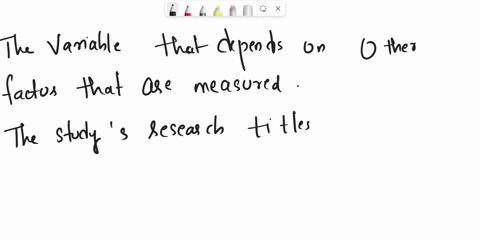 The Variable that depends on Other
factos that are measured.
The study's research titles